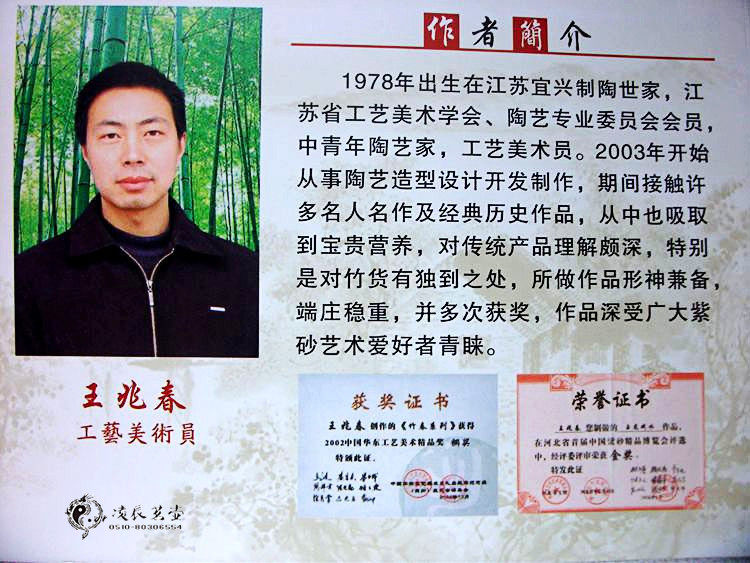 作者簡介
1978年出生在江苏宜兴制陶世家，江
苏省工艺美术学会、陶艺专业委员会会员，
中青年陶艺家，工艺美术员。2003年开始
从事陶艺造型设计开发制作，期间接触许
多名人名作及经典历史作品，从中也吸取
到宝贵营养，对传统产品理解颇深，特别
是对竹货有独到之处，所做作品形神兼备，
端庄稳重，并多次获奖，作品深受广大紫
砂艺术爱好者青睐。
王兆春
工藝美術員
获奖证书
王兆春创作的《竹春系列》获得
2002中国华东工艺美术精品奖 铜奖
特颁此证。
荣誉证书
王兆春 您制做的 作品，
在河北省首届中国紫砂精品博览会评选
中，经评委评审荣获金奖。
特发此证
凌辰茗壶
0510-80306554